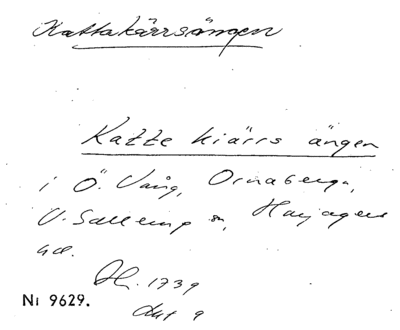 Kattakärrsängen
Katte kiärrs ängen
i Ö. Vång, Ornaberga,
V. Sallerup sn, Harjagers
hd.
Hr. 1739
Akt 9
Ni 9629.